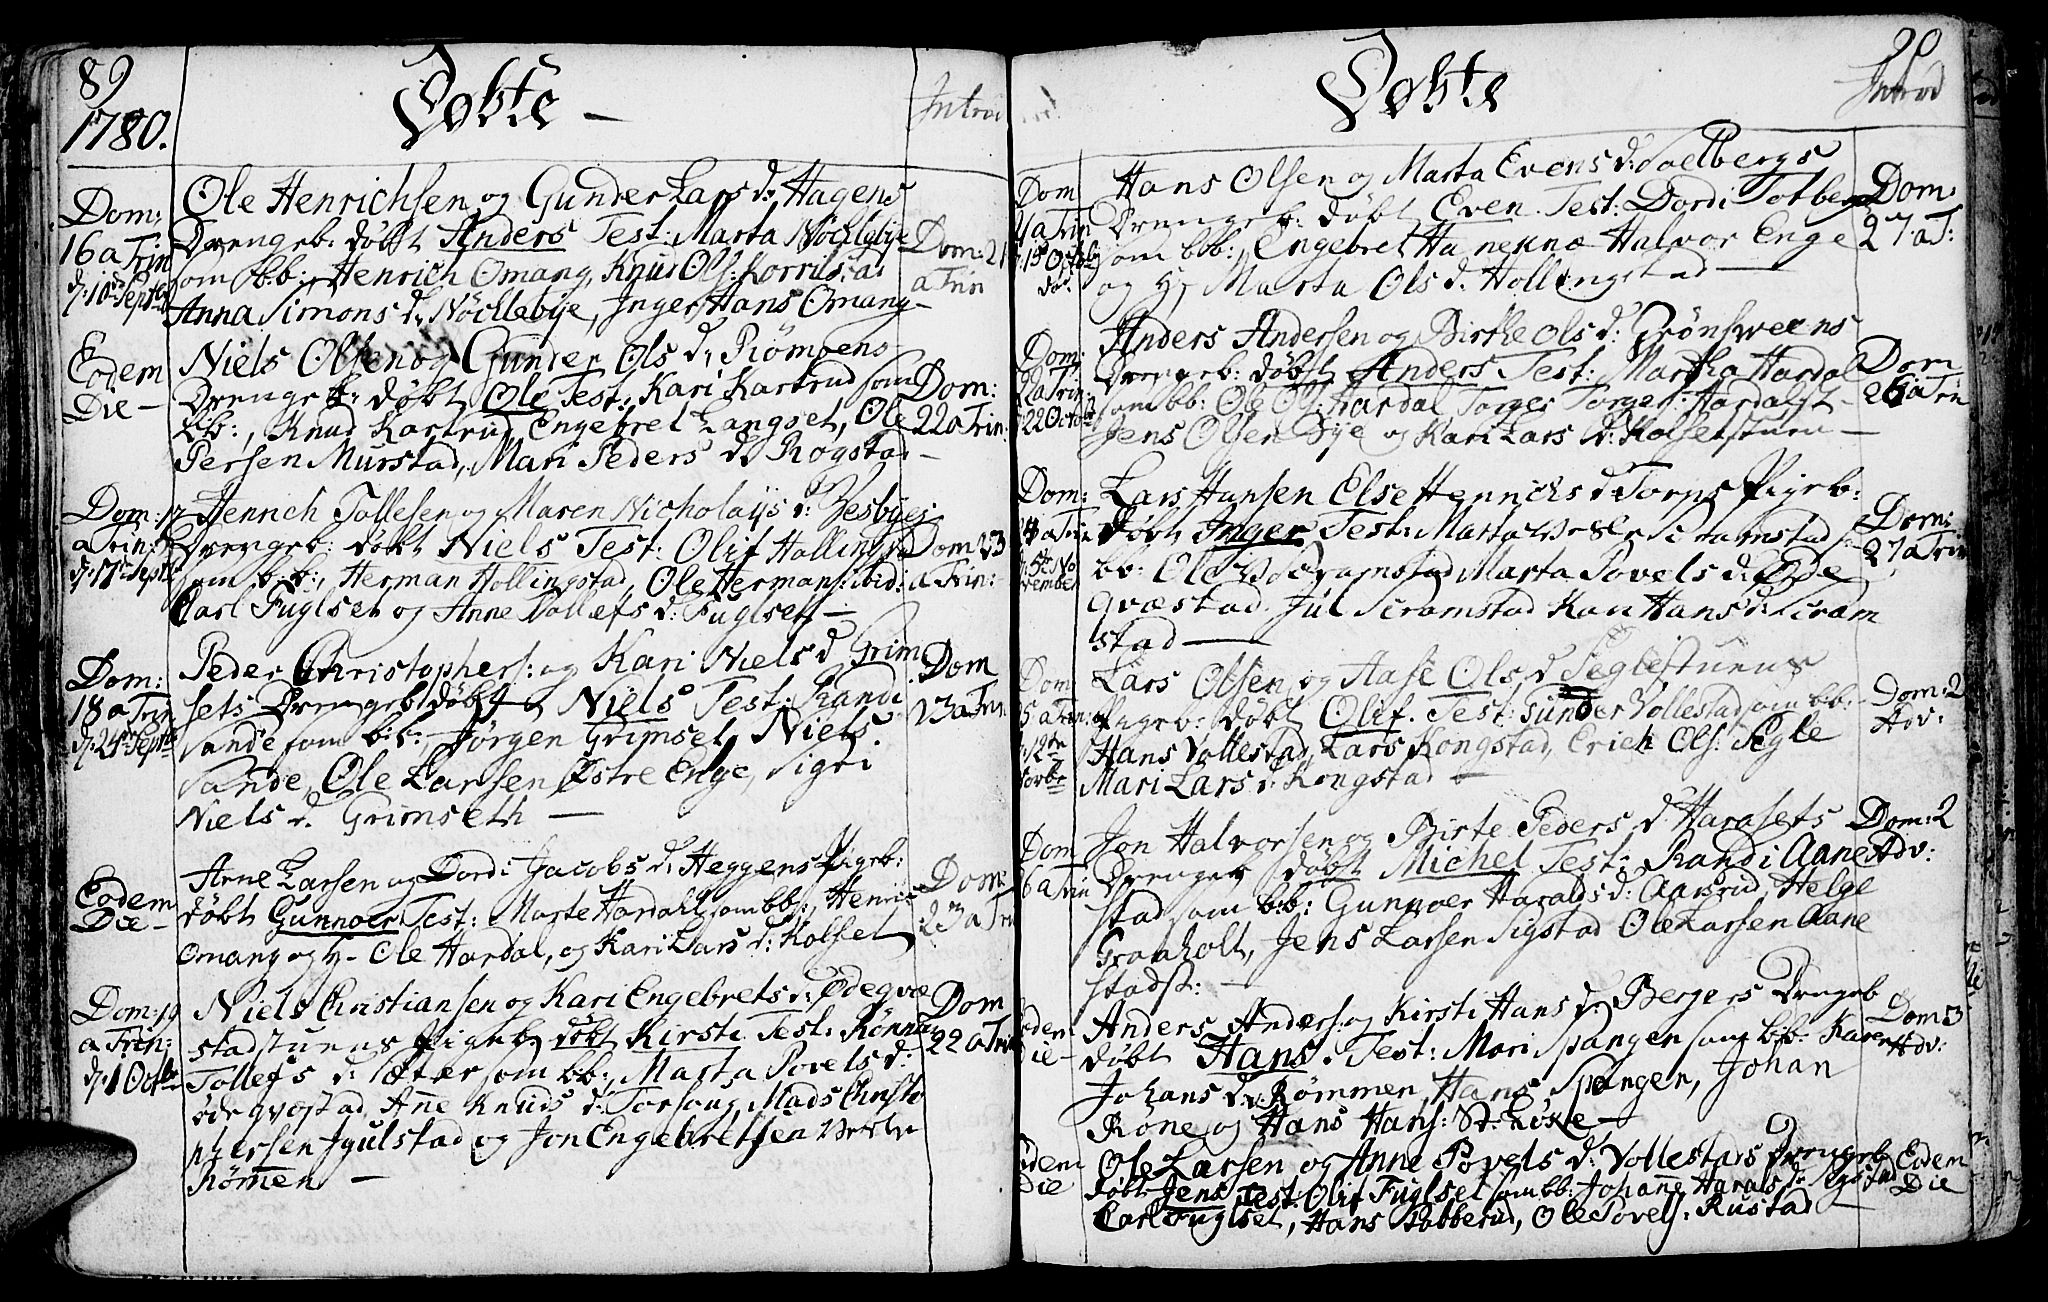 89
1780.
Døbte –
Introd
Dom:
16 a Trin
d: 10de Septb
Ole Henrichsen og Gunder Lars d: Hagens
Drengeb: døbt Anders Test: Marta Nöcleby
som b:b:, Henrich Omang, Knud Ols: Korrilstad
Anna Simons d: Nöcklebye, Inger Hans Omang –
Dom: 21
a Trin
Eodem
Die –
Niels Olsen og Gunder Ols d: Römoens
Drengeb: døbt Ole Test: Kari Kartrud som
bb:, Knud Kartrud, Engebret Langset, Ole
Persen Murstad, Mari Peders d: Rogstad –
Dom:
22 a Trin:
Dom: 17
a Trin:
d: 17de Septb
Henrich Tollesen og Maren Nicholaijs d: Gesbyes
Drengeb: døbt Niels Test: Olif Hollingstad
som b:b:, Herman Hollingstad, Ole Hermans: ibid:
Carl Fuglset og Anne Tollefs d: Fuglset –
Dom 23
a Trin:
Dom:
18 a Trin
d: 24 Septb
Peder Christophers: og Kari Niels d Grim
sets Drengeb døbt Niels Test: Randi
Sande som b:b:, Jörgen Grimset, Niels
Sande, Ole Larsen Østre Enge, Sigri
Niels d: Grimseth –
Dom
23 a Trin
Eodem
Die –
Arne Larsen og Dordi Jacobs d: Heggens Pigeb:
døbt Gunnoer Test: Marte Hardahl som bb:, Henric
Omang og H– Ole Hardal, og Kari Lars d: Kolset
Dom:
23 a Trin
Dom: 19
a Trin:
d: 1 Octbr
Niels Christiansen og Kari Engebrets d: Ødeqvæ
stadstuens Pigeb døbt Kirsti Test: Rönnau
Tollefs d: Sæter som bb:, Marta Povels d:
ödeqvæstad, Anne Knuds d: Torsoug, Mads Christo
phersen Igulstad og Jon Engebretsen Vestre
Römen –
Dom
22 a Trin
90
Døbte
Introd
Dom
21 a Trin
d: 15 Octob
Hans Olsen og Marta Evens d: Soelbergs
Drengeb: døbt Even Test: Dordi Totberg
som bb:, Engebret Haneknæ Halvor Enge
og H– Marta Ols d: Hollingstad –
Dom:
27 a T:
Dom:
22 a Trin:
22 Octob
Anders Andersen og Birthe Ols d: Grönsveens
Drengeb: døbt Anders Test: Martha Hardal
som bb: Ole Ols: Hardal Torger Torger: Hardalst
Jens Olsen Bye og Kari Lars d: Kolsetstuen –
Dom
26 a Trin
Dom:
24 a Trin
5te No
vember
Lars Hansen Else Henrichs d: Torps Pigeb:
døbt Inger Test: Marta Scramstad
bb: Ole Scramstad Marta Povels d: Øde
qvæstad Jul Scramstad Kari Hans d: Scram
stad –
Dom:
27 a Trin
Dom
25 a Trin:
12te
Novbr
Lars Olsen og Aase Ols d: Seglestuens
Pigeb: døbt Olif. Test: Gunder Vollestad som bb:
Hans Vollestad, Lars Kongstad, Erich Ols: Segle
Mari Lars d: Kongstad –
Dom: 2
Adv:
Dom
26 a Trin
Jon Halvorsen og Birte Peders d: Harasets
Drengeb døbt Michel Test: Randi Aane
stad som b:b: Gunnoer Haralds d: Aasrud, Helge
Graaholt, Jens Larsen Sigstad Ole Larsen Aane
stadst: –
Dom: 2
Adv:
Eodem
Die –
Anders Anders: og Kirsti Hans d: Bergers Drengeb
døbt Hans. Test: Mari Spangen som bb: Karen
Johans d: Römmen, Hans Spangen, Johan
Röne og Hans Hans: St: Løkke –
Dom 3
Adv:
Eodem
Die
Ole Larsen og Anne Povels d: Vollestads Drengeb
døbt Jens Test: Olif Fuglset som bb: Johanne Harals d: Segstad
Carl Fuglset, Hans Stabberud, Ole Povels: Rustad –
Eodem
Die